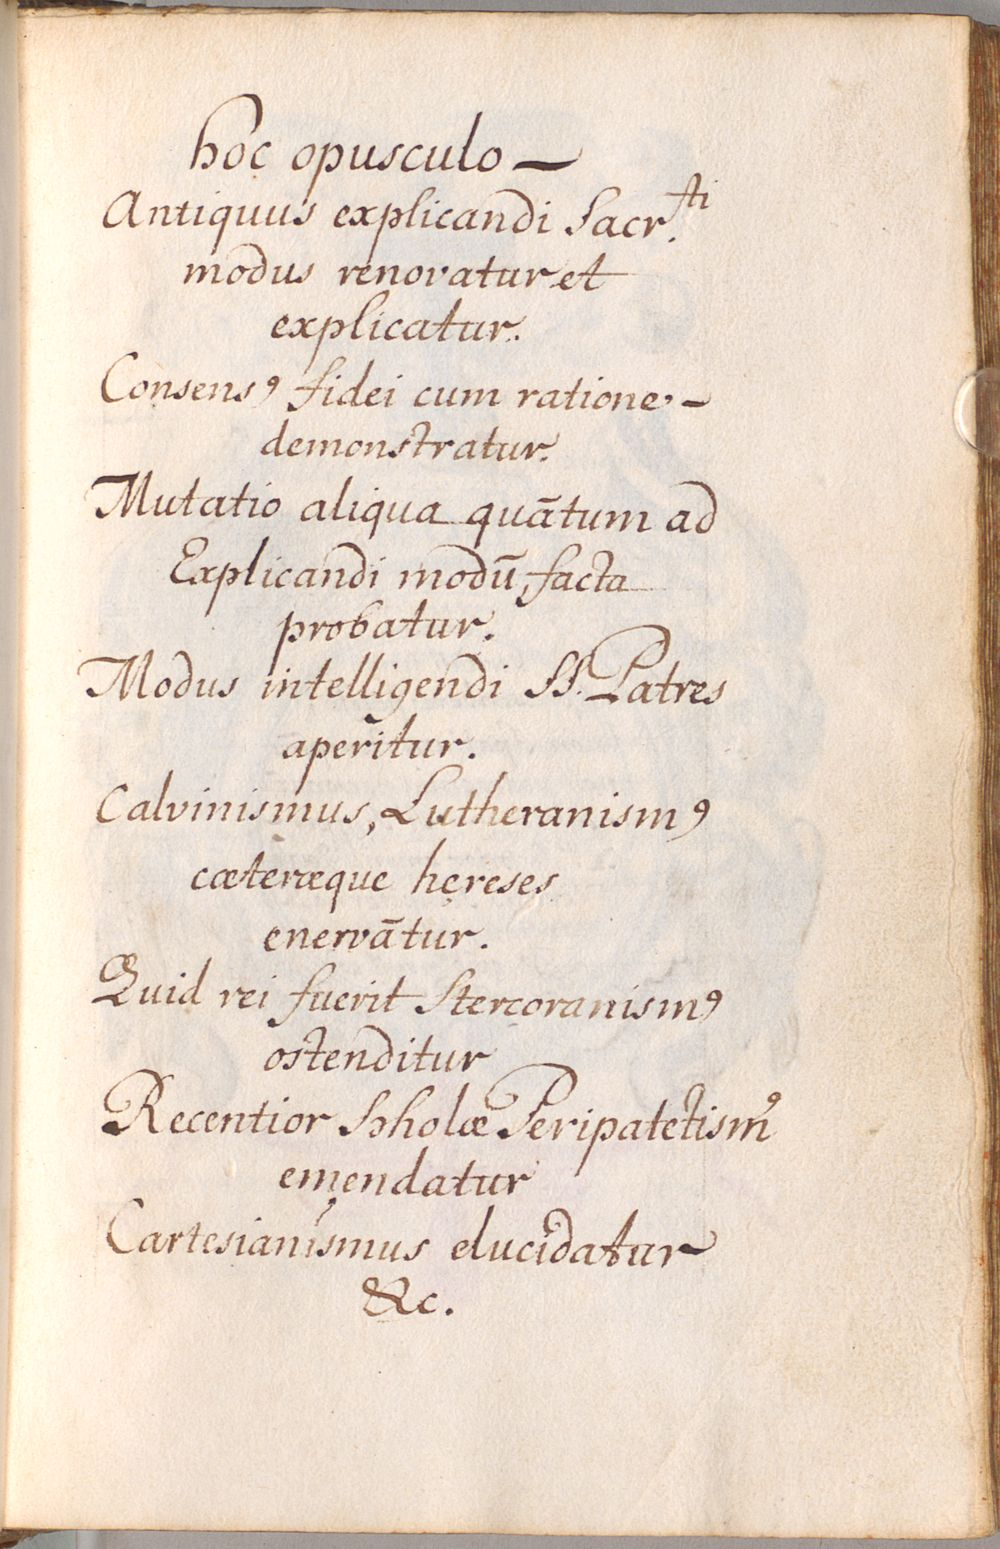 hoc opusculo —
Antiquus explicandi Sacr.ti
modus renovatur et
explicatur.
Consensꝯ fidei cum ratione –
demonstratur.
Mutatio aliqua quātum ad
Explicandi modū, facta
probatur.
Modus intelligendi SS. Patres
aperitur.
Calvinismus, Lutheranismꝯ
cæteræque hęreses
enervātur.
Quid rei fuerit Stercoranismꝯ
ostenditur
Recentior Scholæ Peripatetismꝯ
emendatur
Cartesianismus elucidatur
&c.